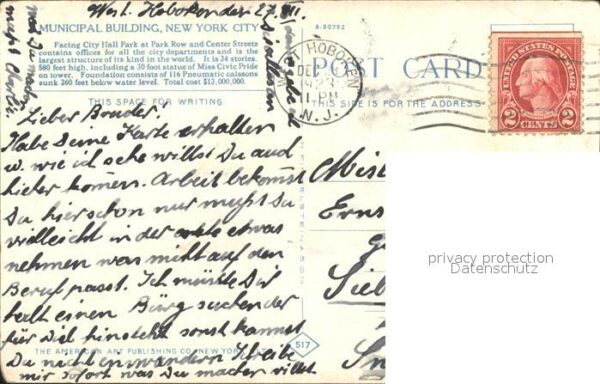 West Hoboken den 27. VII.
MUNICIPAL BUILDING, NEW YORK CITY
Facing City Hall Park at Park Row and Center Streets
contains offices for all the city departments and is the
largest structure of its kind in the world. It is 34 stories.
580 feet high, including a 30 foot statue of Miss Civic Pride
on tower. Foundation consists of 116 Pneumatic caissons
sunk 260 feet below water level. Total cost $13,000,000.
THIS SPACE FOR WRITING
Lieber Bruder!
Habe Deine Karte erhalten
u. wie ich sehe willst Du auch
hieher kommen. Arbeit bekommst
Du hier schon nur mußt Du
vielleicht in der erste etwas
nehmen was nicht auf den
Beruf passt. Ich müsste Dir
halt einen Bürg suchen der
für Dich hinsteht sonst kannst
Du nicht einwandern Schreibe
mir sofort was Du machen willst
THE AMERICAN ART PUBLISHING CO. NEW YORK CITY
A-80792
POST CARD
THIS SIDE IS FOR THE ADDRESS
HOBOKEN
DEC
11 PM
N. J.
UNITED STATES POSTAGE
2 CENTS 2
Ernst
517
privacy protection
Datenschutz